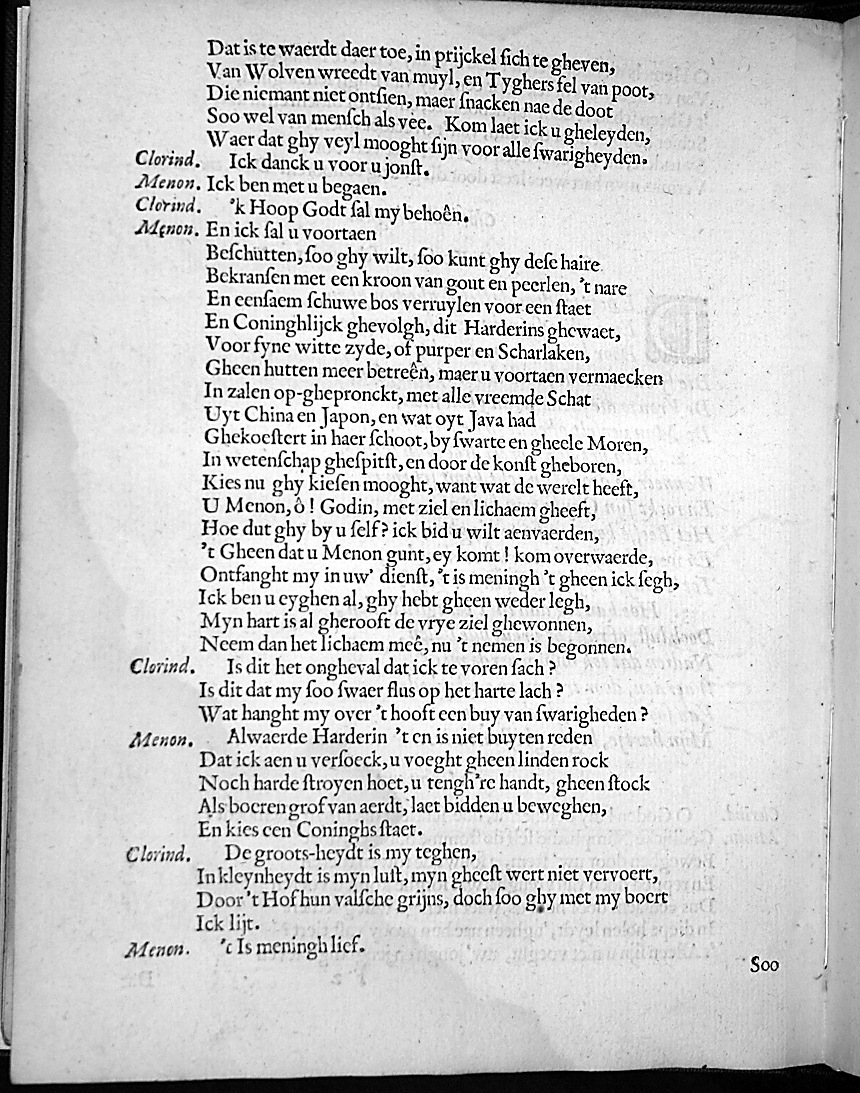 Dat is te waerdt daer toe, in prijckel ſich te gheven,
Van Wolven wreedt van muyl, en Tyghers fel van poot,
Die niemant niet ontſien, maer ſnacken nae de doot
Soo wel van menſch als vee. Kom laet ick u gheleyden,
Waer dat ghy veyl mooght ſijn voor alle ſwarigheyden.
Clorind. Ick danck u voor u jonſt.
Menon. Ick ben met u begaen.
Clorind. 'k Hoop Godt ſal my behoên.
Menon. En ick ſal u voortaen
Beſchutten, ſoo ghy wilt, ſoo kunt ghy deſe haire
Bekranſen met een kroon van gout en peerlen, 't nare
En eenſaem ſchuwe bos verruylen voor een ſtaet
En Coninghlijck ghevolgh, dit Harderins ghewaet,
Voor ſyne witte zyde, of purper en Scharlaken,
Gheen hutten meer betreên, maer u voortaen vermaecken
In zalen op-ghepronckt, met alle vreemde Schat
Uyt China en Japon, en wat oyt Java had
Ghekoeſtert in haer ſchoot, by ſwarte en gheele Moren,
In wetenſchap gheſpitſt, en door de konſt gheboren,
Kies nu ghy kieſen mooght, want wat de werelt heeft,
U Menon, ô! Godin, met ziel en lichaem gheeft,
Hoe dut ghy by u ſelf? ick bid u wilt aenvaerden,
't Gheen dat u Menon gunt, ey komt! kom overwaerde,
Ontfanght my in uw' dienſt, 't is meningh 't gheen ick ſegh,
Ick ben u eyghen al, ghy hebt gheen weder legh,
Myn hart is al gherooft de vrye ziel ghewonnen,
Neem dan het lichaem meê, nu 't nemen is begonnen.
Clorind. Is dit het ongheval dat ick te voren ſach?
Is dit dat my ſoo ſwaer flus op het harte lach?
Wat hanght my over 't hooft een buy van ſwarigheden?
Menon. Alwaerde Harderin 't en is niet buyten reden
Dat ick aen u verſoeck, u voeght gheen linden rock
Noch harde ſtroyen hoet, u tengh're handt, gheen ſtock
Als boeren grof van aerdt, laet bidden u beweghen,
En kies een Coninghs ſtaet.
Clorind. De groots-heydt is my teghen,
In kleynheydt is myn luſt, myn gheeſt wert niet vervoert,
Door 't Hof hun valſche grijns, doch ſoo ghy met my boert
Ick lijt.
Menon. 't Is meningh lief.
Soo